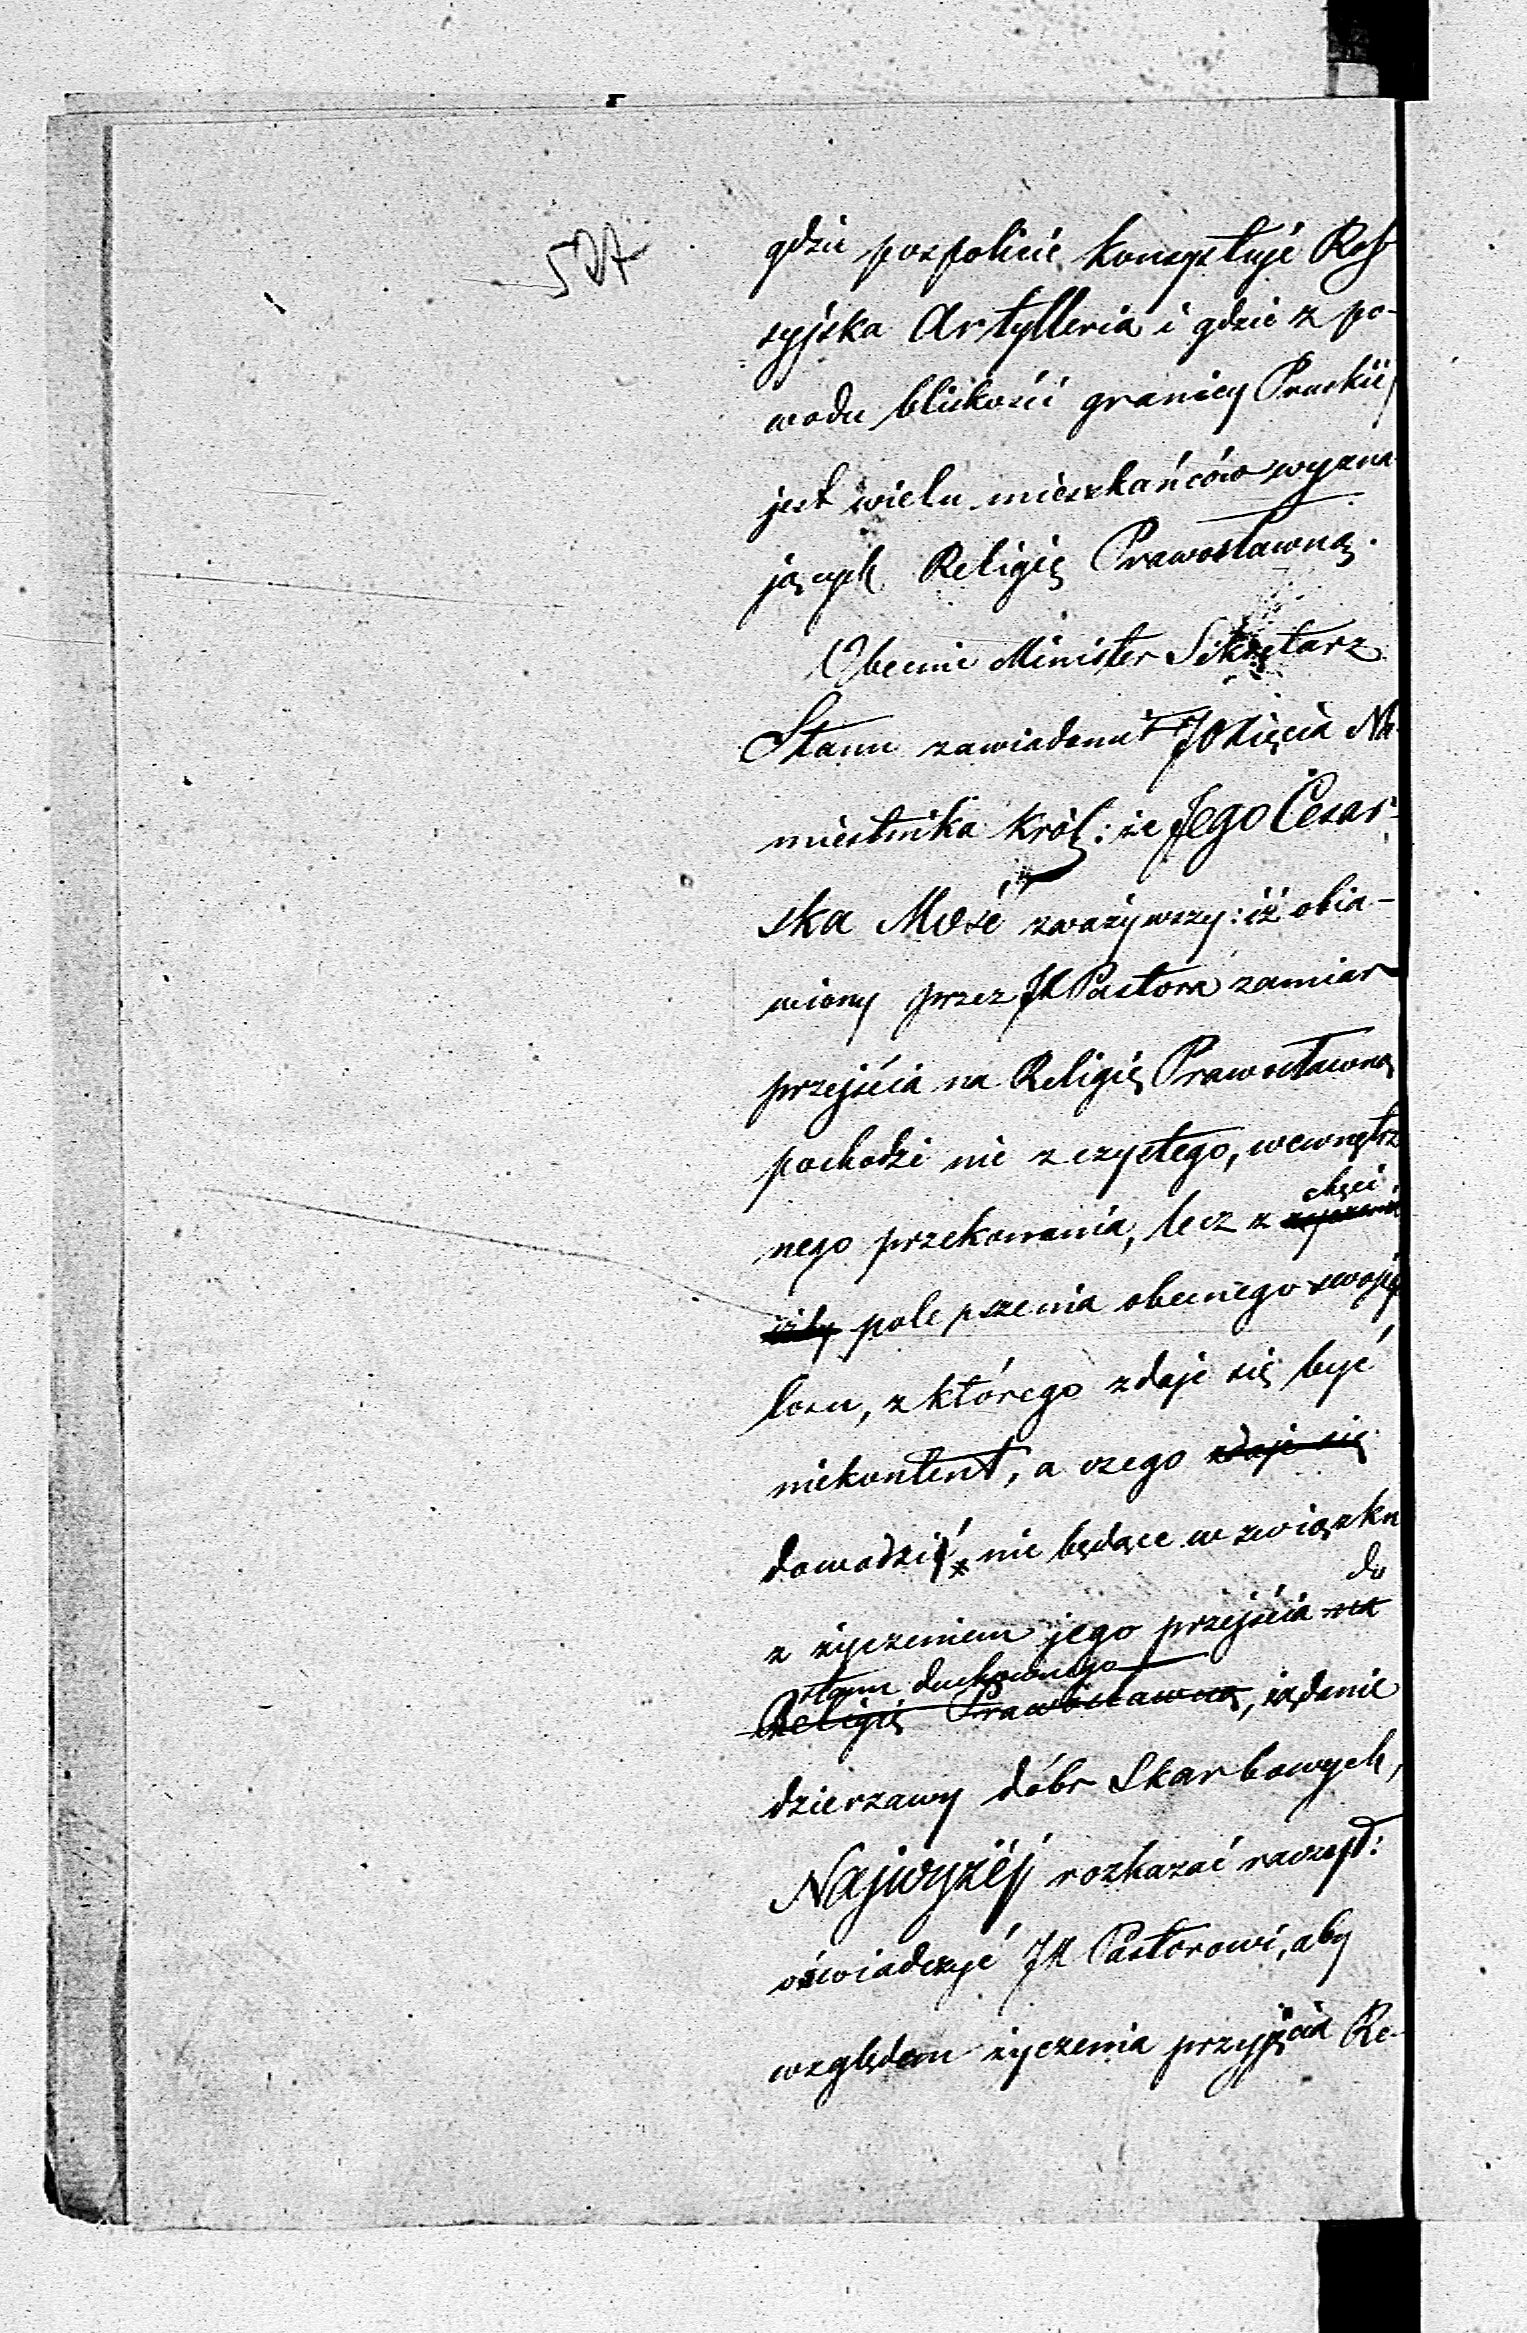 507
gdzie pospolicie konsystuje Ros-
syjska Artylleria i gdzie z po-
wodu blizkości granicy Pruskiej
jest wielu mieszkańców wyzna-
jących Religię Prawosławną.
Obecnie Minister Sekretarz
Stanu zawiadomił JO Xięcia Na-
miestnika Król: że Jego Cesar-
ska Mość zważywszy: iż obia-
wiony przez JX Pastora zamiar
przejścia na Religię Prawosławną
pochodzi nie z czystego, wewnętrz
nego przekonania, lecz z chęci
polepszenia obecnego swojego
losu, z którego zdaje się być
niekontent, a czego zdaje się
dowodzić nie będące w związku
z życzeniem jego przejścia na do
stanu duchownego
Religię Prawosławną, żądanie
dzierzawy dóbr Skarbowych,
Najwyżéj rozkazać raczył:
oświadczyć JX Pastorowi, aby
względem życzenia przyjęcia Re-